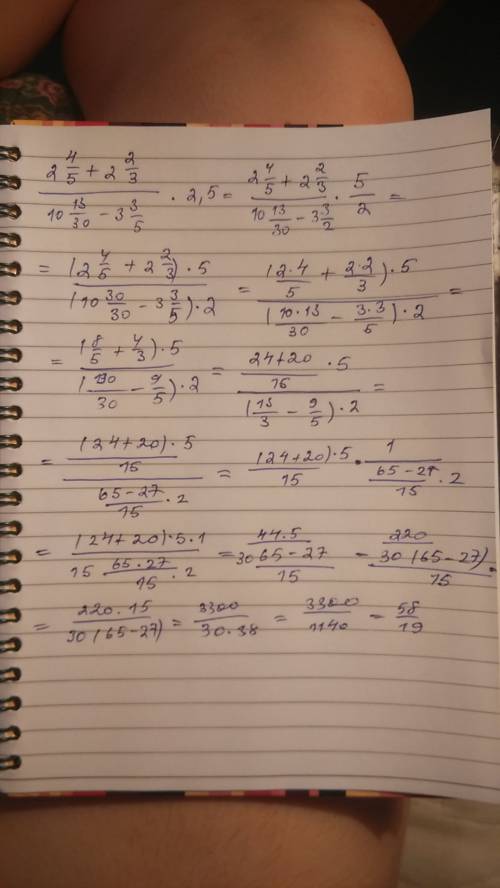 (2 4/5 + 2 2/3)/(10 13/30 - 3 3/5) · 2,5 = (2 4/5 + 2 2/3)/(10 13/30 - 3 3/2) · 5/2 =
= ((2 4/5 + 2 2/3) · 5)/((10 30/30 - 3 3/5) · 2) = ((2·4/5 + 2·2/3) · 5)/((10·13/30 - 3·3/5) · 2) =
= ((8/5 + 4/3) · 5)/((130/30 - 9/5) · 2) = ((24+20)/15 · 5)/((13/3 - 9/5) · 2) =
= ((24+20) · 5/15)/((65-27)/15 · 2) = (24+20) · 5/15 · 1/((65-27)/15 · 2)
= ((24+20) · 5 · 1)/(15 (65·27)/15 · 2) = (44·5)/(30 (65-27)/15) = 220/(30 (65-27)/15) ·
= (220·15)/(30(65-27)) = 3300/(30·38) = 3300/1140 = 58/19